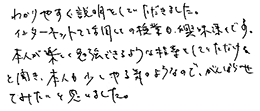 わかりやすく説明をしていただきました。
インターネットでを用いての授業も、興味深くです。
本人が楽しく勉強できるような授業をしていただける
と聞き、本人も少しやる気のようなので、がんばらせ
てみたいと思いました。